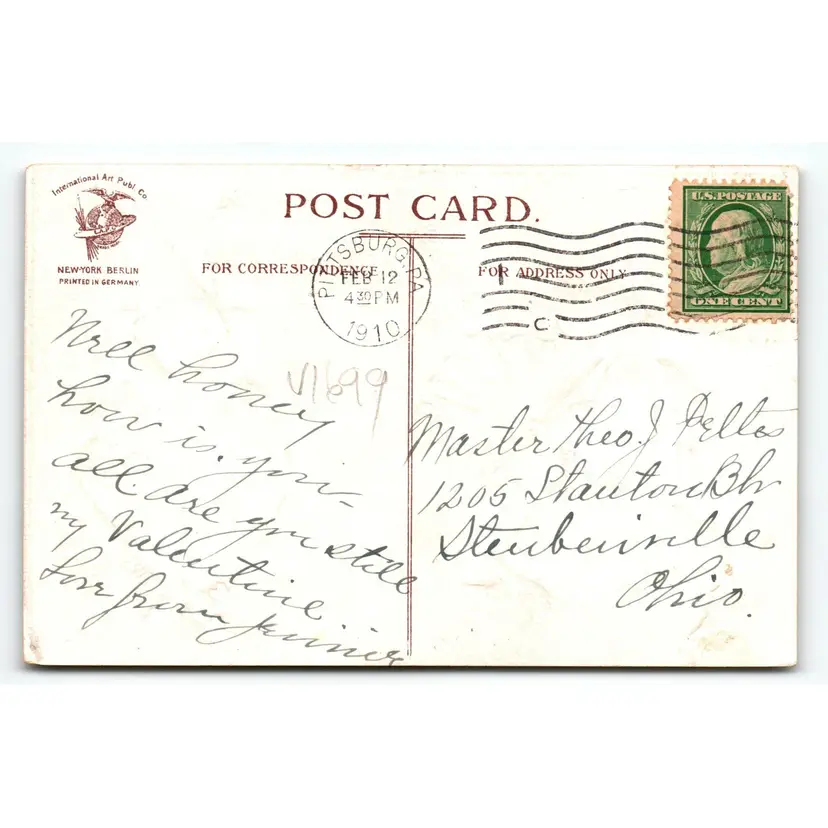 International Art Publ. Co
NEW-YORK BERLIN
PRINTED IN GERMANY
POST CARD.
FOR CORRESPONDENCE
FOR ADDRESS ONLY
PITTSBURG, PA
FEB 12
4 30 PM
1910
1
C
U.S. POSTAGE
ONE CENT
V1699
Well honey
how is you-
all. are you still
my Valentine
Love from
Master Theo. J
1205 Stanton Blv
Steubenville
Ohio.